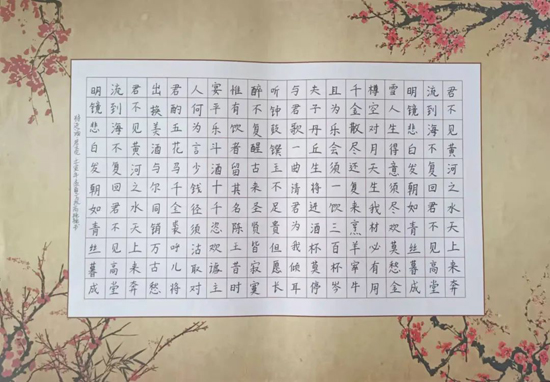 君不见黄河之水天上来奔
流到海不复回君不见高堂
明镜悲白发朝如青丝暮成
雪人生得意须尽欢莫愁金
樽空对月天生我材必有用
千金散尽还复来烹羊宰牛
且为乐会须一饮三百杯岑
夫子丹丘生将进酒杯莫停
与君歌一曲请君为我倾耳
听钟鼓馔玉不足贵但愿长
醉不复醒古来圣贤皆寂寞
惟有饮者留其名陈王昔时
宴平乐斗酒十千恣欢谑主
人何为言少钱径须沽取对
君酌五花马千金裘呼儿将
出换美酒与尔同销万古愁
君不见黄河之水天上来奔
流到海不复回君不见高堂
明镜悲白发朝如青丝暮成